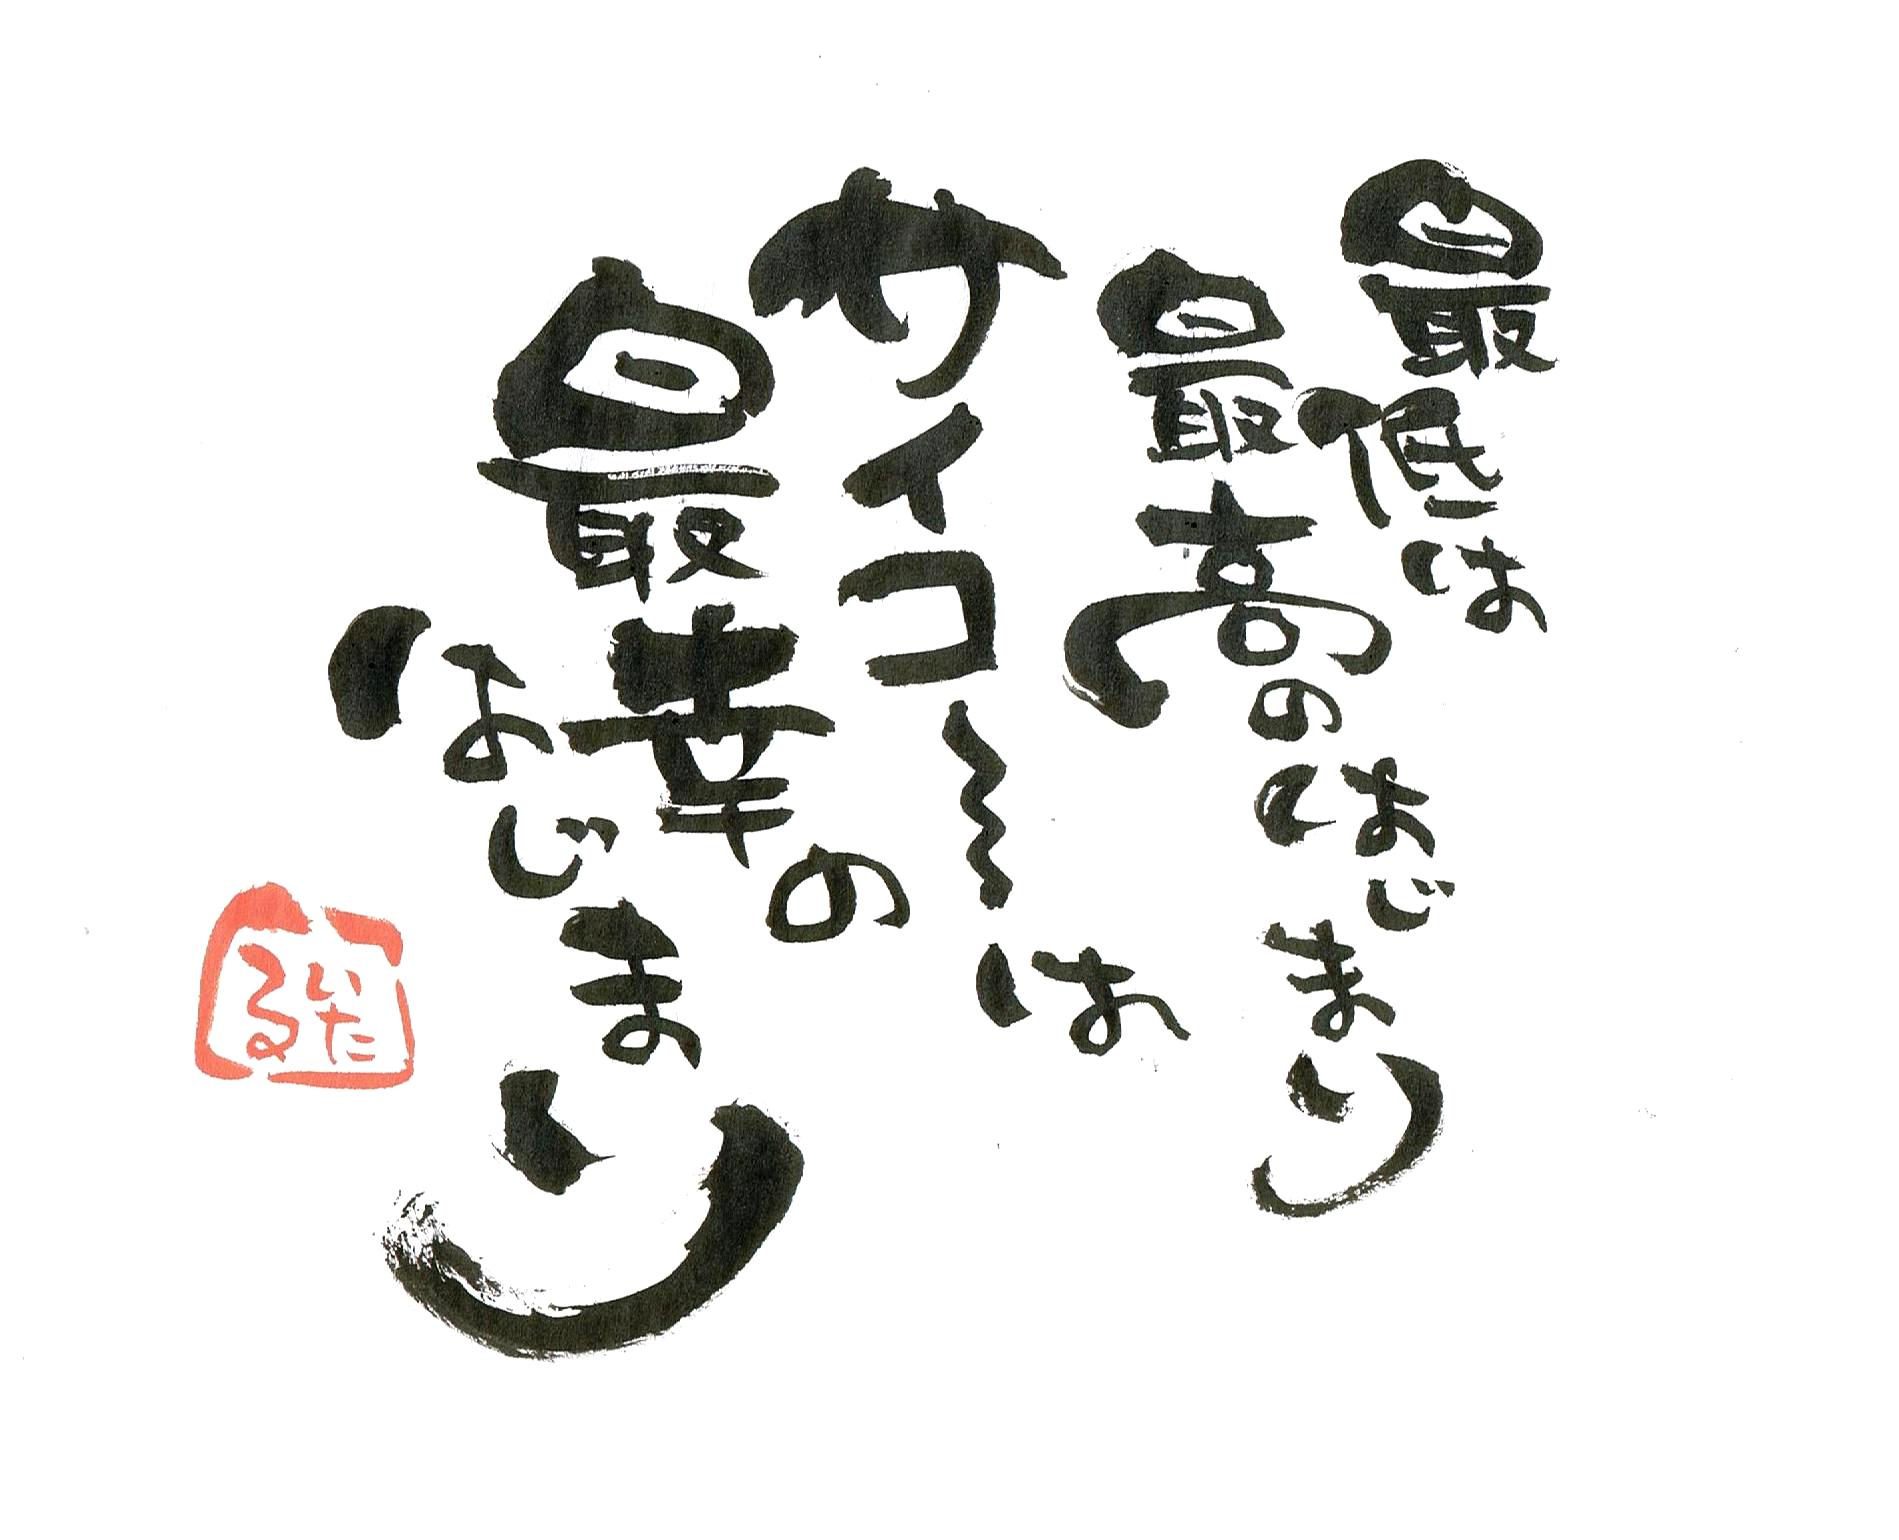 最低は
最高のはじまり
サイコ〜は
最幸の
はじまり
いた
る